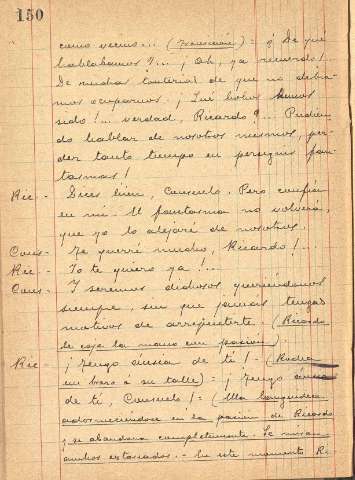 150
como veras... (Transición) = ¿De qué
hablábamos?... ¡Oh, ya recuerdo!
De muchas tonterías de que no debía-
mos ocuparnos. ¡Qué bobos hemos
sido!... verdad, Ricardo?... Pudien-
do hablar de nosotros mismos, per-
der tanto tiempo en perseguir fan-
tasmas!
Ric - Dices bien, Consuelo. Pero confía
en mí. El fantasma no volverá,
que yo lo alejaré de nosotros.
Cons - Te querré mucho, Ricardo!...
Ric - Yo te quiero ya!...
Cons - Y seremos dichosos queriéndonos
siempre, sin que jamás tengas
motivos de arrepentirte. (Ricardo
le coje la mano con pasión)
Ric - ¡Tengo ánsia de tí! - (Rodea
un brazo á su talle) = ¡Tengo ánsia
de tí, Consuelo! = (Ella languidece
adormeciéndose en la pasión de Ricardo
y se abandona completamente. Se miran
ambos extasiados. - En este momento Ri-